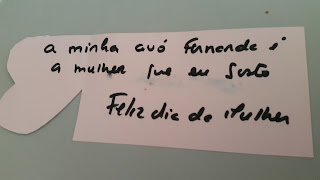 a minha avó Fernanda é
a mulher que eu gosto
Feliz dia da Mulher